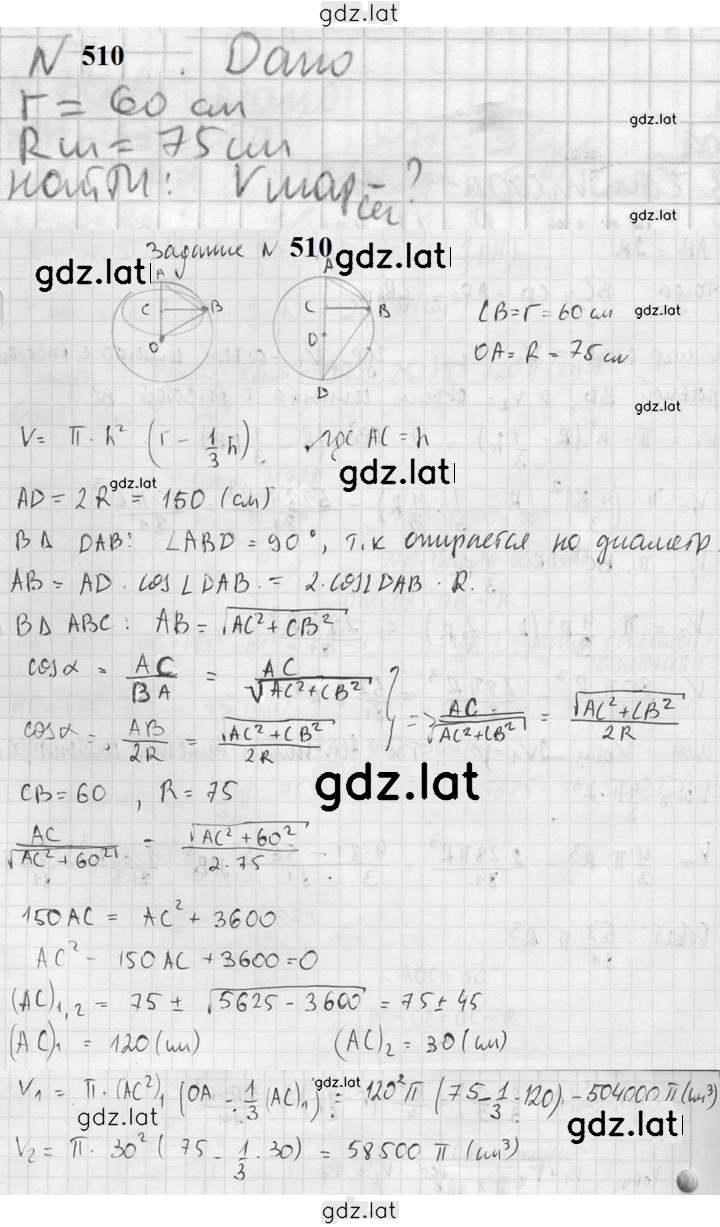 gdz.lat
N 510. Дано
r = 60 см
Rш = 75 см
gdz.lat
найти: Vшар сег - ?
gdz.lat
Задание N 510
gdz.lat
A
C B
O
A
C B
O
D
CB = r = 60 см
gdz.lat
OA = R = 75 см
gdz.lat
V = π · h² (r - 1/3 h), где AC = h
gdz.lat
gdz.lat
AD = 2R = 150 (см)
В Δ DAB: ∠ABD = 90°, т.к опирается на диаметр.
AB = AD · cos∠DAB = 2·cos∠DAB · R.
В Δ ABC: AB = √(AC² + CB²)
cosα = AC/BA = AC/√(AC² + CB²)
cosα = AB/2R = √(AC² + CB²)/2R } => AC/√(AC² + CB²) = √(AC² + CB²)/2R
CB = 60, R = 75
gdz.lat
AC/√(AC² + 60²) = √(AC² + 60²)/2·75
150AC = AC² + 3600
AC² - 150AC + 3600 = 0
(AC)₁,₂ = 75 ± √(5625 - 3600) = 75 ± 45
(AC)₁ = 120 (см) (AC)₂ = 30 (см)
gdz.lat
V₁ = π · (AC²)₁ (OA - 1/3 (AC)₁) = 120²π (75 - 1/3 · 120) = 504000 π (см³)
gdz.lat
gdz.lat
V₂ = π · 30² (75 - 1/3 · 30) = 58500 π (см³)
gdz.lat